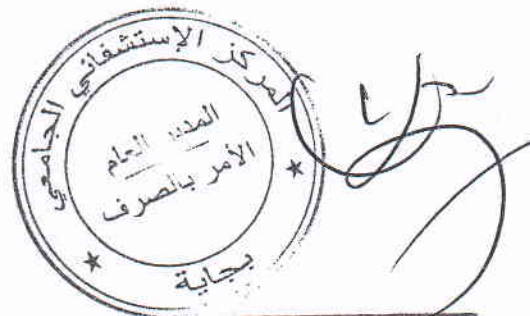 المركز الإستشفائي الجامعي
المدير العام
الأمر بالصرف
بجاية